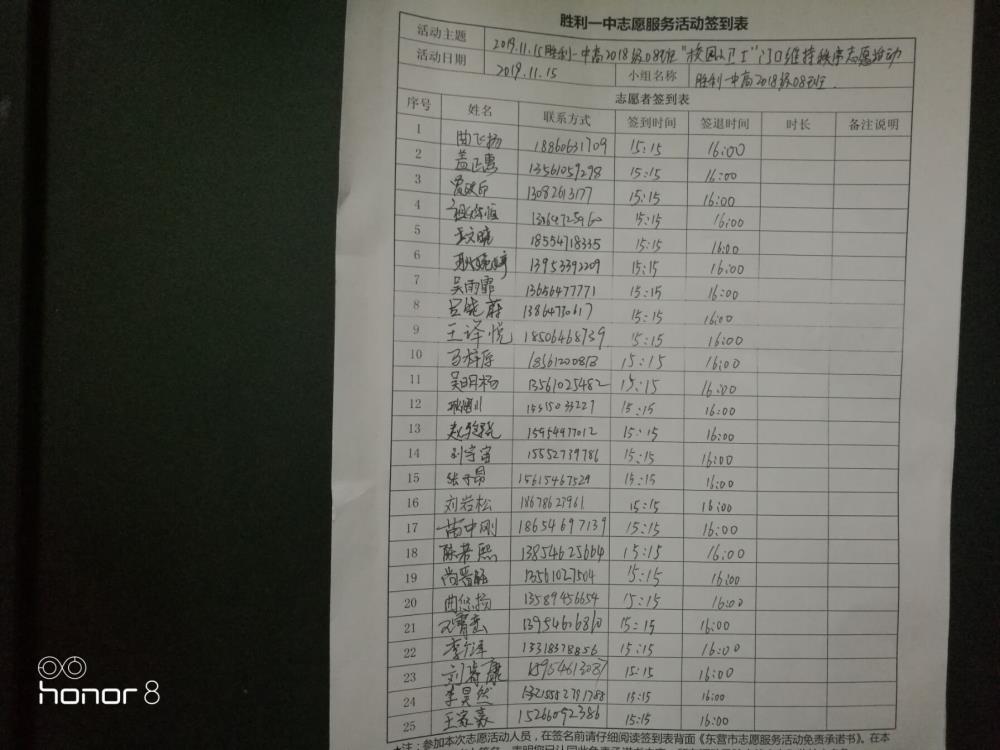 胜利一中志愿服务活动签到表
活动主题 2019.11.15胜利一中高2018级08班"校园卫士"门口维持秩序志愿活动
活动日期 2019.11.15 小组名称 胜利一中高2018级08班.
志愿者签到表
序号 姓名 联系方式 签到时间 签退时间 时长 备注说明
1 曲飞扬 18860631709 15:15 16:00
2 盖正惠 13561059298 15:15 16:00
3 15:15 16:00
4 15:15 16:00
5 王文晓 18554718335 15:15 16:00
6 13953392209 15:15 16:00
7 吴雨霏 13656477771 15:15 16:00
8 15:15 16:00
9 王译悦 18506468739 15:15 16:00
10 15:15 16:00
11 吴明杨 13561025482 15:15 16:00
12 15:15 16:00
13 15954977012 15:15 16:00
14 刘宇宙 15552739786 15:15 16:00
15 15615467529 15:15 16:00
16 刘岩松 18678627961 15:15 16:00
17 苗中刚 18654697139 15:15 16:00
18 陈若熙 13854625664 15:15 16:00
19 13561027504 15:15 16:00
20 曲悠扬 13589456654 15:15 16:00
21 13954616860 15:15 16:00
22 13318378856 15:15 16:00
23 15:15 16:00
24 李昊然 15:15 16:00
25 王家嘉 15266092386 15:15 16:00
注：参加本次志愿活动人员，在签名前请仔细阅读签到表背面《东营市志愿服务活动免责承诺书》。在本
honor 8